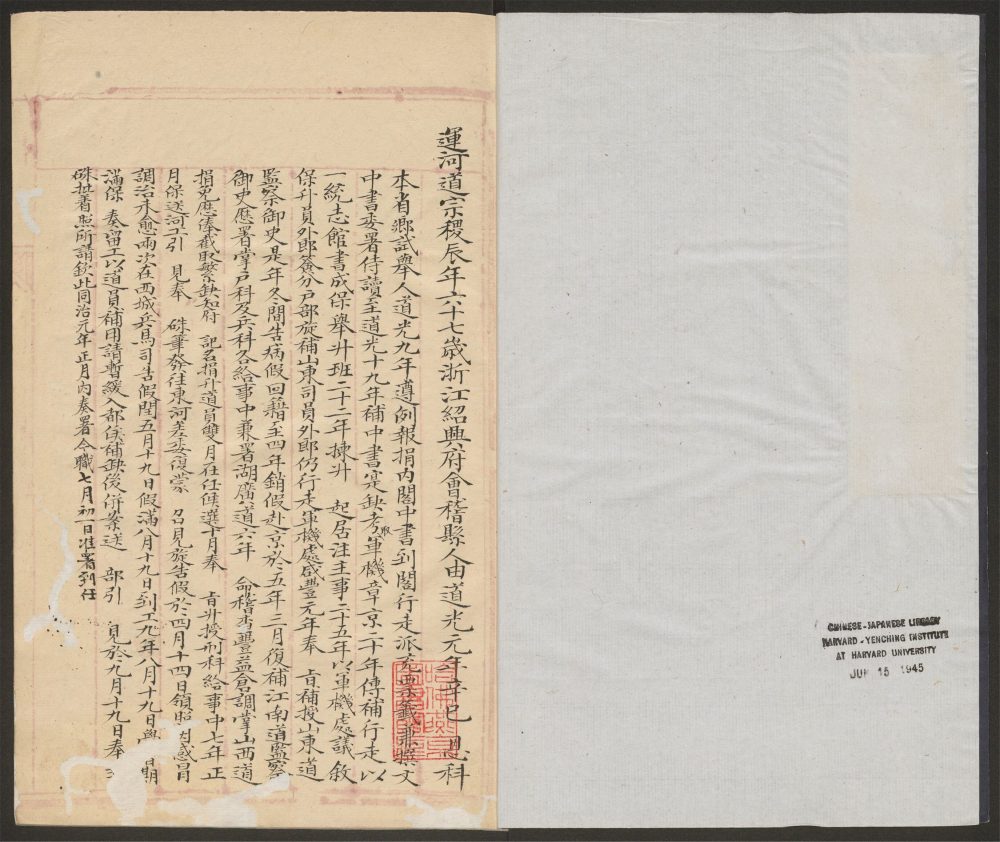 運河道宗稷辰年六十七歲浙江紹興府會稽縣人由道光元年辛巳恩科
本省鄉試舉人道光九年遵例報捐內閣中書到閣行走派充票籤兼撰文
中書委署侍讀至道光十九年補中書寔缺考取軍機章京二十年傳補行走以
一統志館書成保舉升班二十二年揀升　起居注主事二十五年以軍機處議敘
保升員外郎簽分戶部旋補山東司員外郎仍行走軍機處咸豐元年奉　旨補授山東道
監察御史是年冬間告病假回籍至四年銷假赴京於五年三月復補江南道監察
御史歷署掌戶科及兵科各給事中兼署湖廣道六年　命稽查豐益倉調掌山西道
捐免歷俸截取繁缺知府　記名捐升道員雙月在任候選十月奉　旨升授刑科給事中七年正
月保送河工引　見奉　硃筆發往東河差委復蒙　召見旋告假於四月十四日領照因感冒
調治未愈兩次在西城兵馬司告假閏五月十九日假滿八月十九日到工九年八月十九日學習期
滿保　奏留工以道員補用請暫緩入部俟補缺後併案送　部引　見於九月十九日奉
硃批著照所請欽此同治元年正月內奏署今職七月初一日准署到任
CHINESE-JAPANESE LIBRARY
HARVARD-YENCHING INSTITUTE
AT HARVARD UNIVERSITY
JUN 15 1945